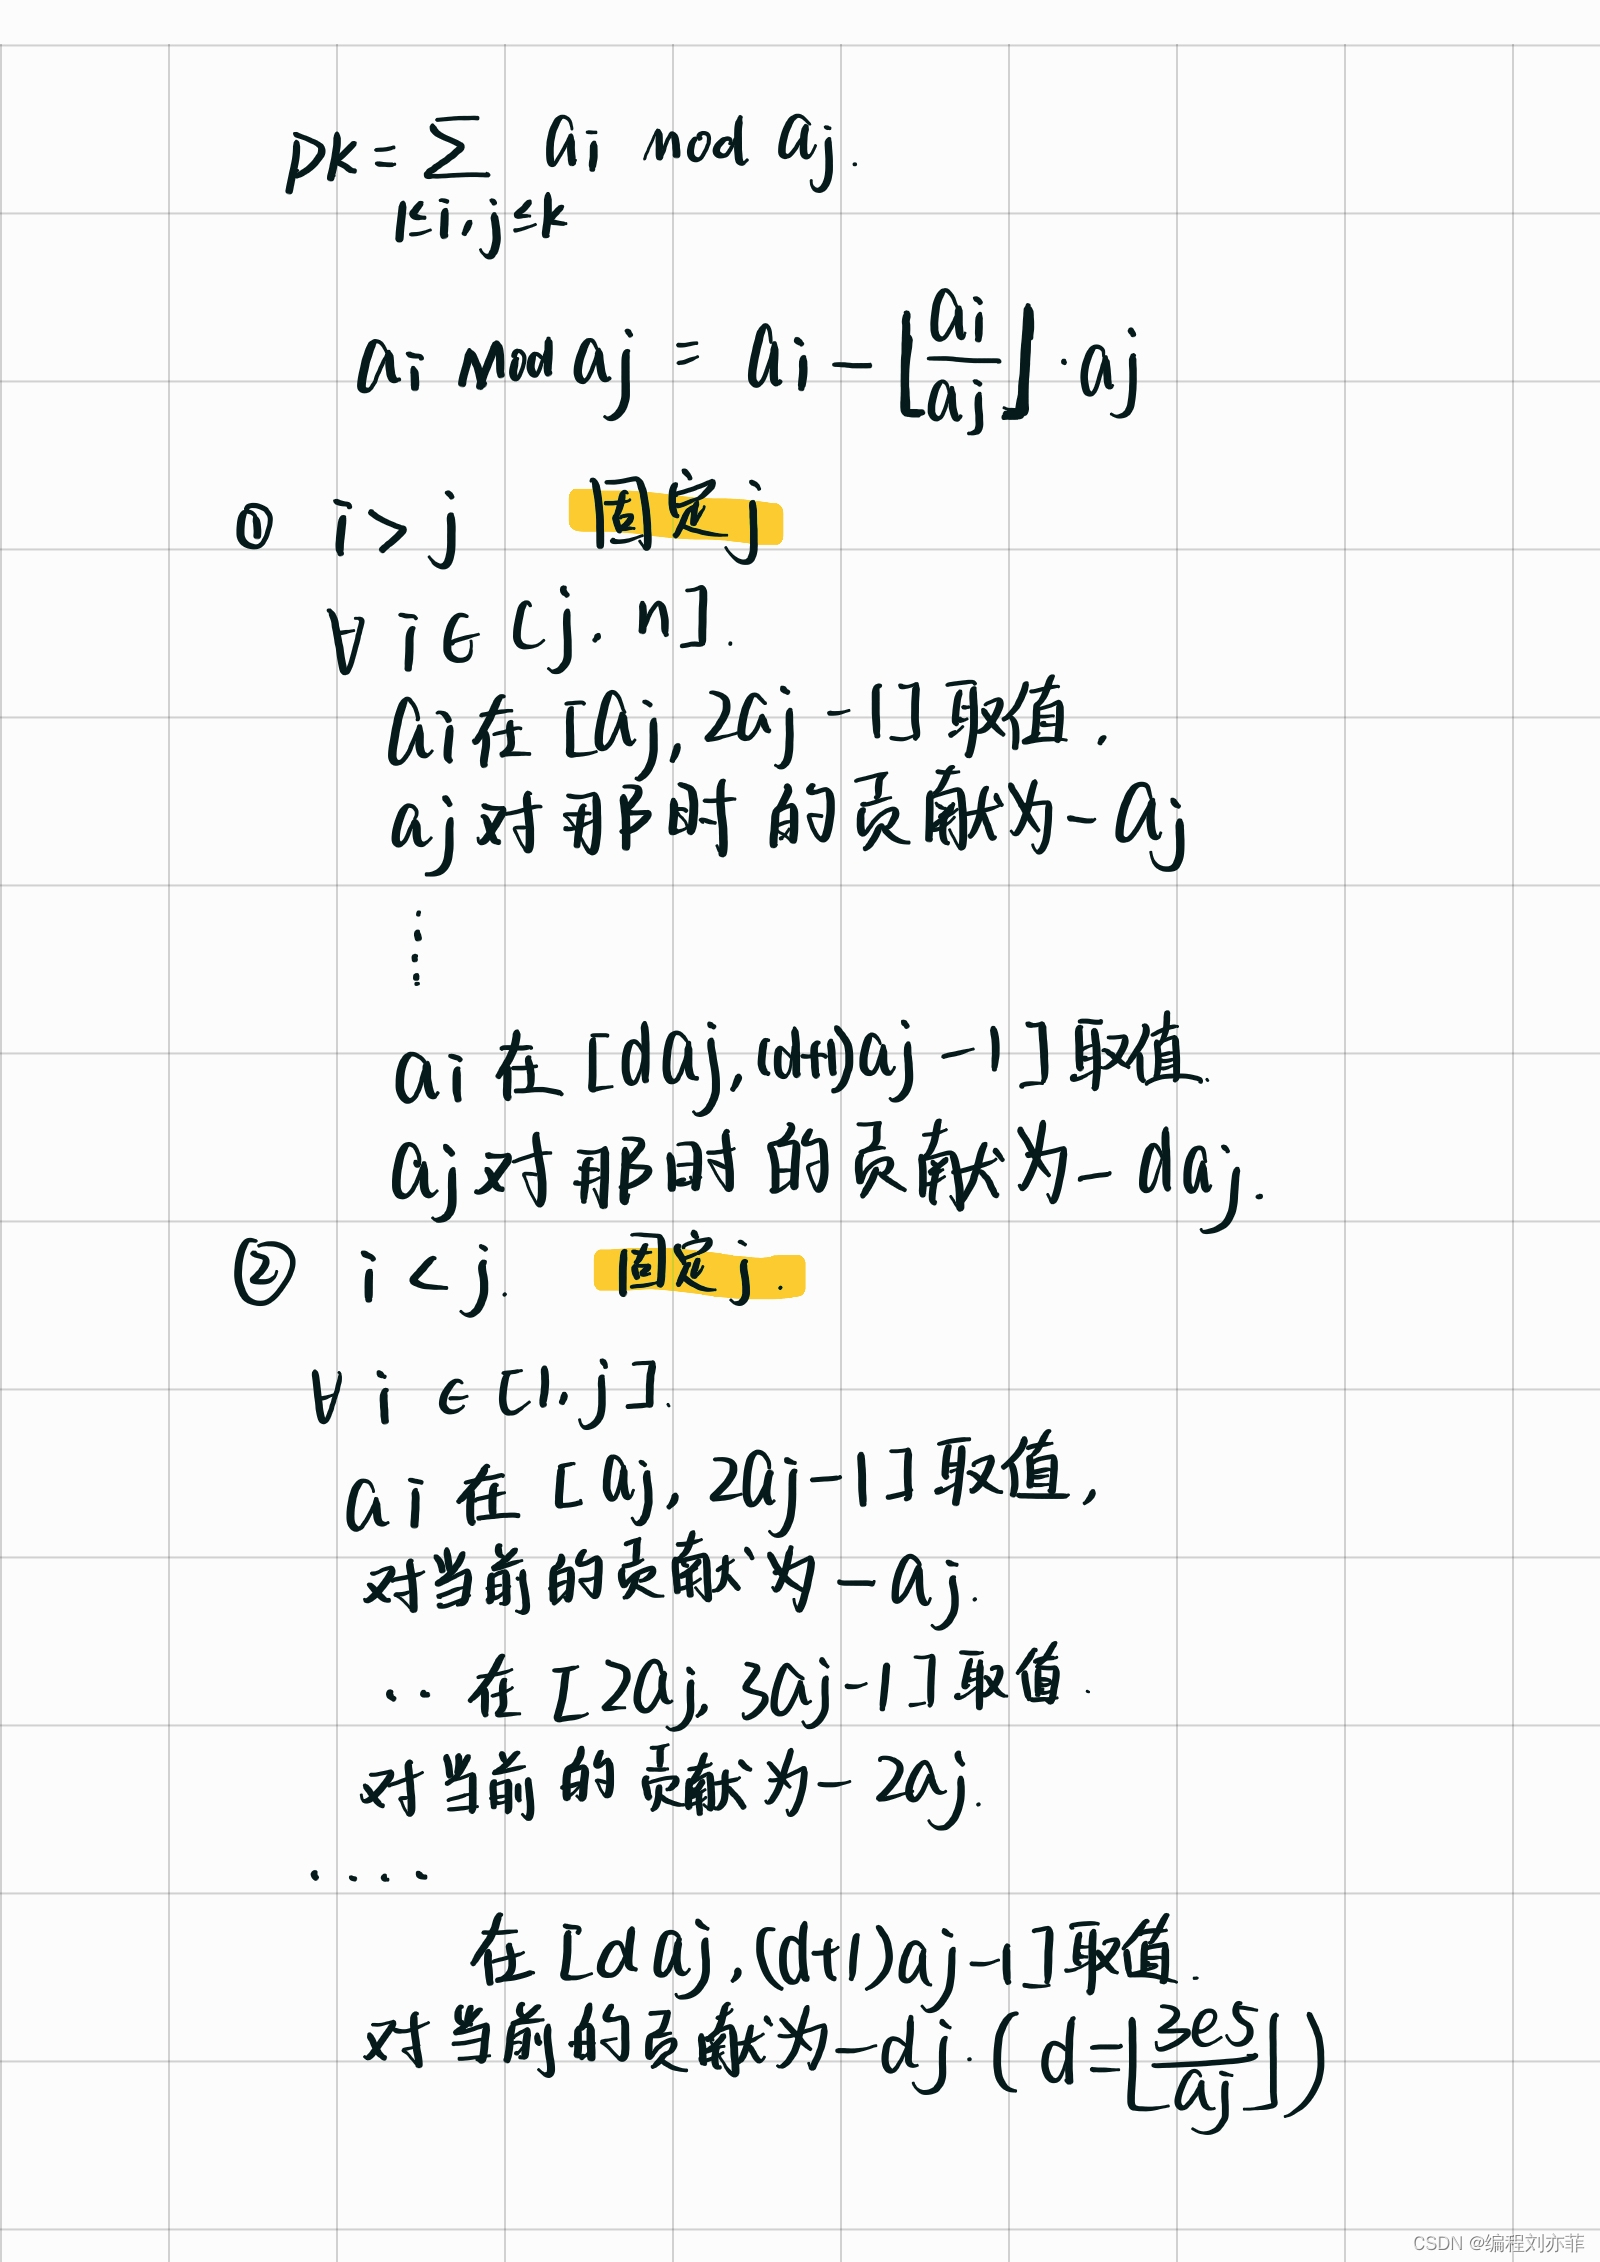 pk = ∑ ai mod aj.
1≤i,j≤k
ai mod aj = ai - ⌊ai/aj⌋·aj
① i>j 固定j
∀ i∈(j, n].
ai在[aj, 2aj-1]取值.
aj对那时的贡献为-aj
⋮
ai在[daj,(d+1)aj-1]取值.
aj对那时的贡献为-daj.
② i<j. 固定j.
∀ i ∈ [1, j].
ai在[aj, 2aj-1]取值,
对当前的贡献为-aj.
‥在[2aj, 3aj-1]取值.
对当前的贡献为-2aj.
····
在[daj,(d+1)aj-1]取值.
对当前的贡献为-dj.(d=⌊3e5/aj⌋)
CSDN @编程刘亦菲